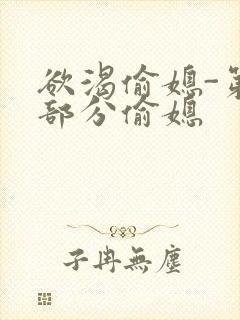 欲渴偷媳-第
部分偷媳
子冉無塵